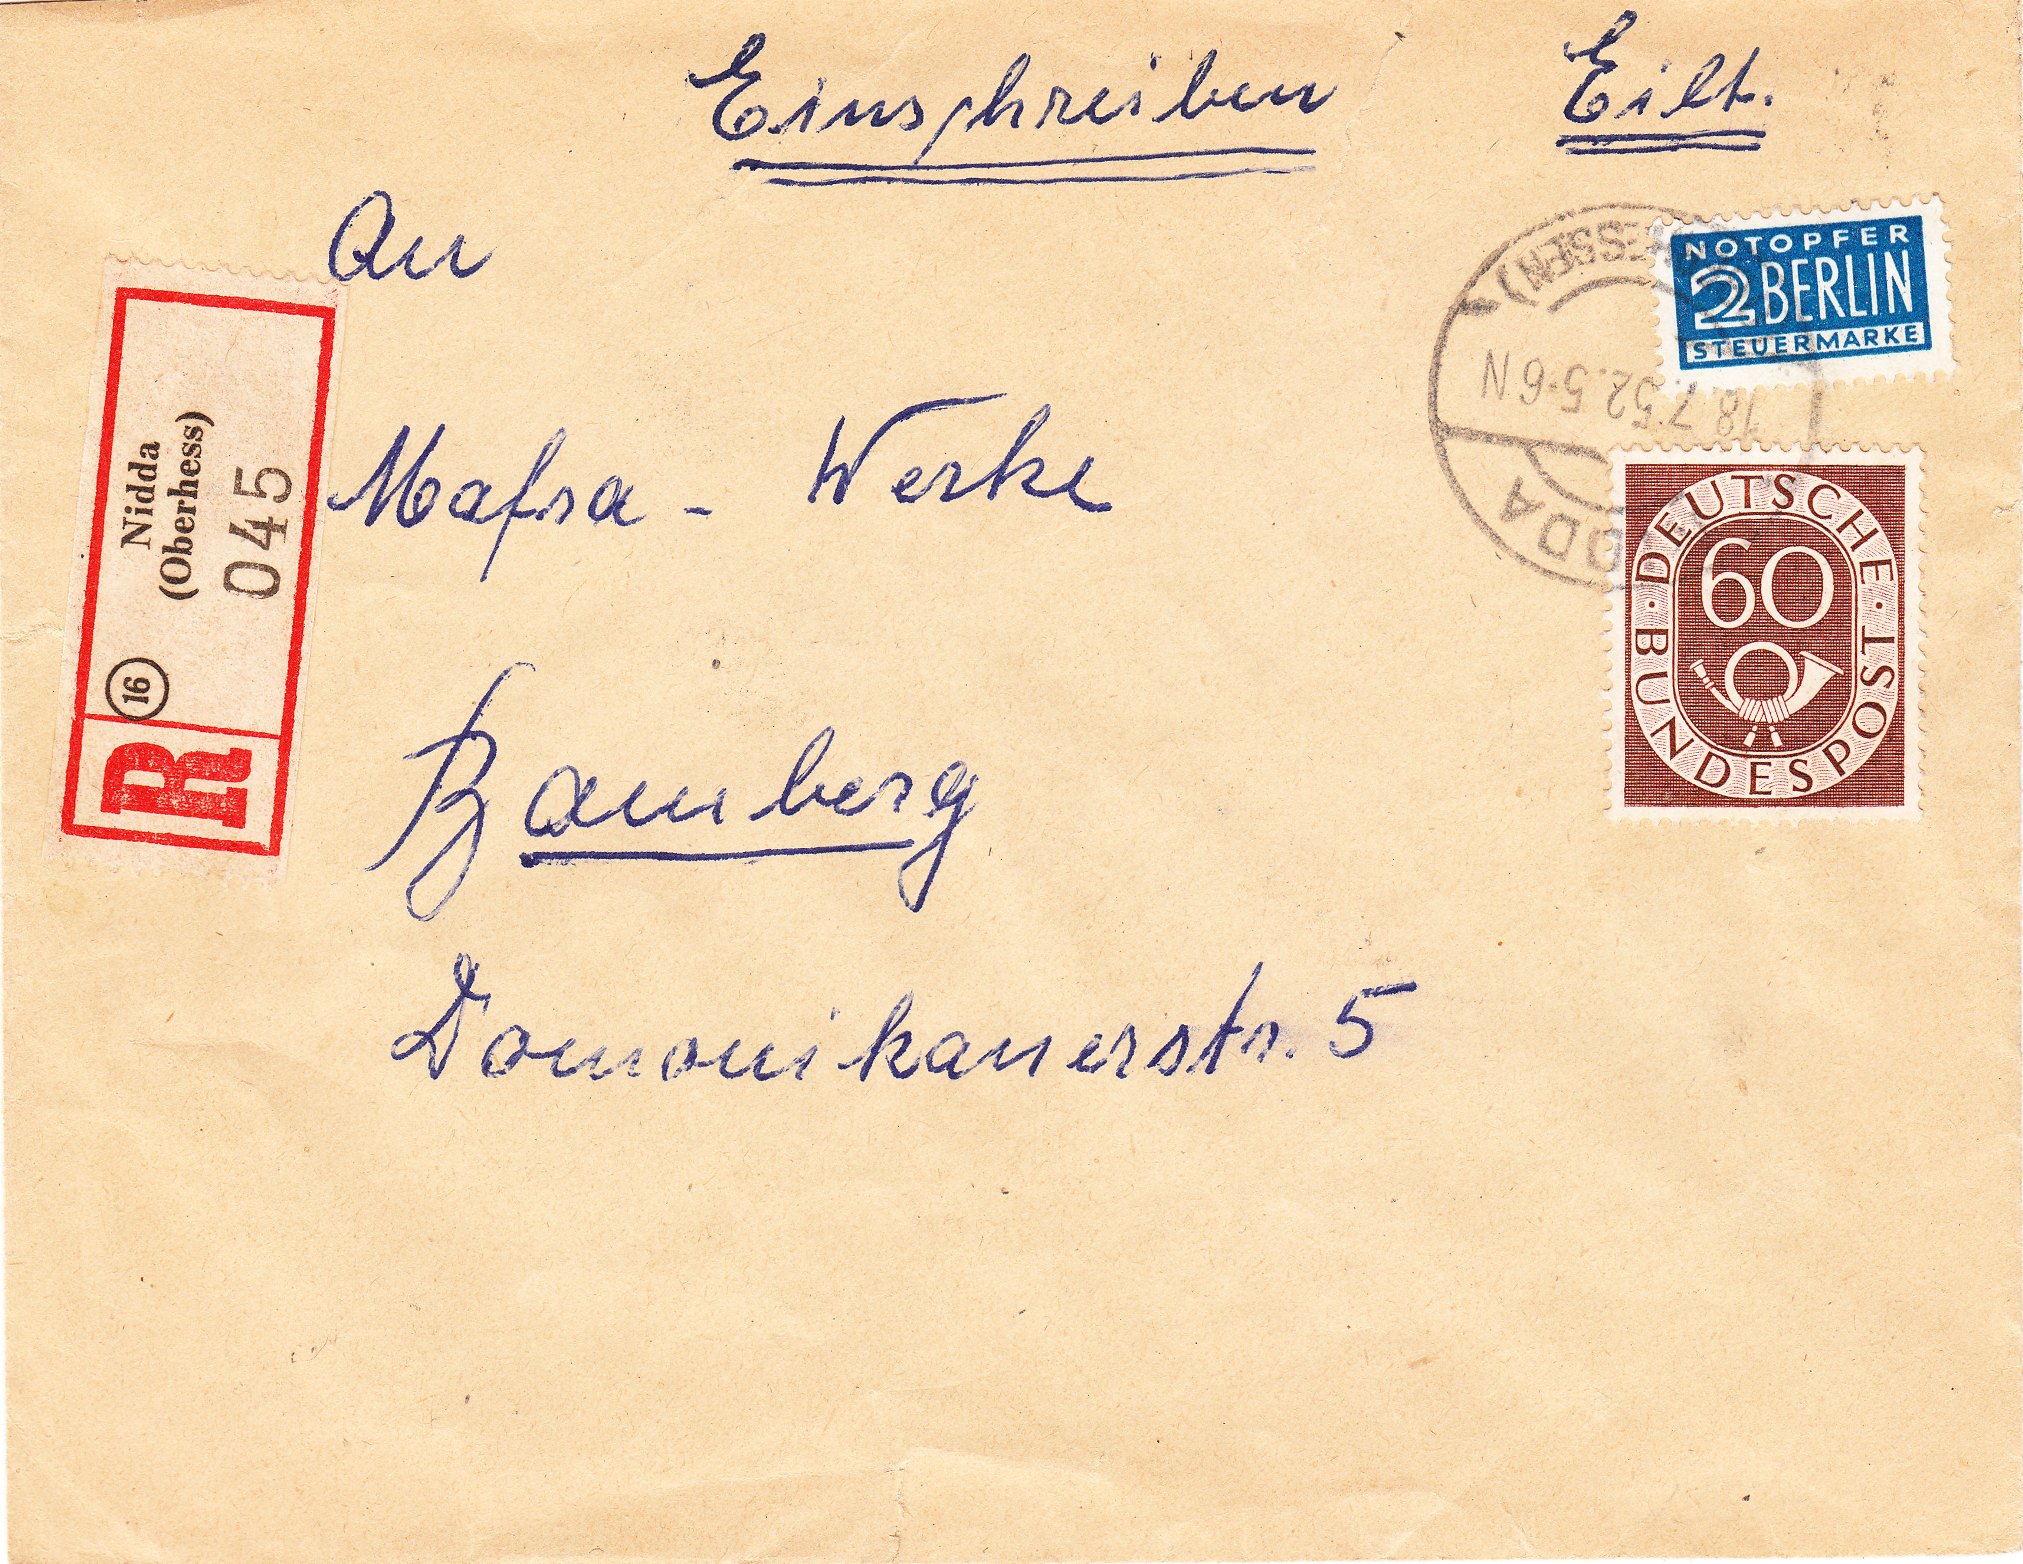 Einschreiben Eilt.
An
Mafra - Werke
Bamberg
Domonikanerstr. 5
Nidda
(Oberhess)
045
16
R
HESSEN)
18.7.52.5-6N
DDA
NOTOPFER
2 BERLIN
STEUERMARKE
DEUTSCHE · BUNDESPOST ·
60